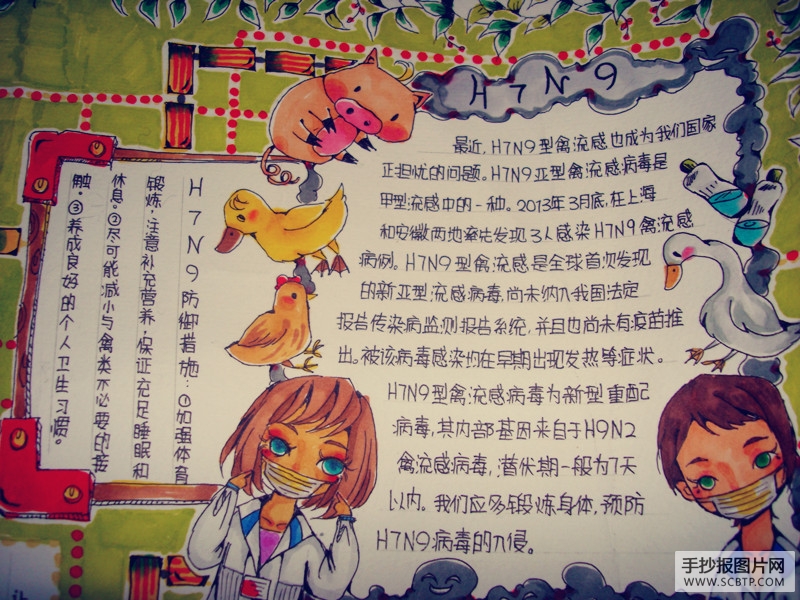 H7N9
最近,H7N9型禽流感也成为我们国家
正担忧的问题。H7N9亚型禽流感病毒是
甲型流感中的一种。2013年3月底,在上海
和安徽两地率先发现3人感染H7N9禽流感
病例。H7N9型禽流感是全球首次发现
的新亚型流感病毒,尚未纳入我国法定
报告传染病监测报告系统,并且也尚未有疫苗推
出。被该病毒感染均在早期出现发热等症状。
H7N9型禽流感病毒为新型重配
病毒,其内部基因来自于H9N2
禽流感病毒,潜伏期一般为7天
以内。我们应多锻炼身体,预防
H7N9病毒的入侵。
H7N9防御措施:①加强体育
锻炼,注意补充营养,保证充足睡眠和
休息。②尽可能减小与禽类不必要的接
触。③养成良好的个人卫生习惯。
手抄报图片网
WWW.SCBTP.COM